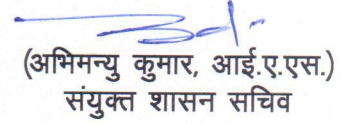 (अभिमन्यु कुमार, आई.ए.एस.)
संयुक्त शासन सचिव